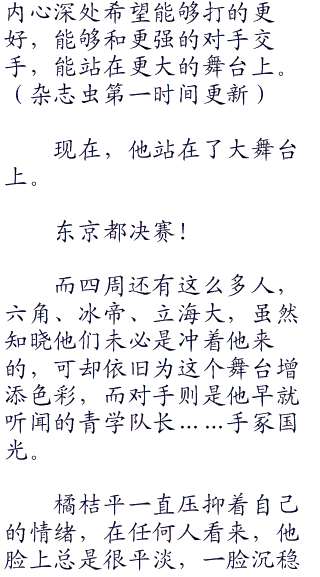 内心深处希望能够打的更
好，能够和更强的对手交
手，能站在更大的舞台上。
（杂志虫第一时间更新）
现在，他站在了大舞台
上。
东京都决赛！
而四周还有这么多人，
六角、冰帝、立海大，虽然
知晓他们未必是冲着他来
的，可却依旧为这个舞台增
添色彩，而对手则是他早就
听闻的青学队长……手冢国
光。
橘桔平一直压抑着自己
的情绪，在任何人看来，他
脸上总是很平淡，一脸沉稳